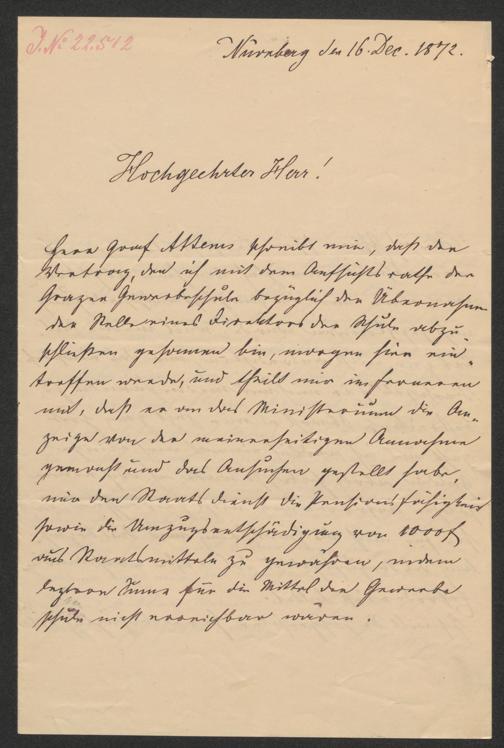 J. № 22.512
Nürnberg den 16. Dec. 1872.
Hochgeehrter Herr!
Herr Graf Attems schreibt mir, daß der
Vertrag, den ich mit dem Aufsichtsrathe der
Grazer Gewerbeschule bezüglich der Übernahme
der Stelle eines Direktors der Schule abzu„
schließen gesonnen bin, morgen hier ein„
treffen werde, und theilt mir im ferneren
mit, daß er an das Ministerium die An„
zeige von der meinerseitigen Annahme
gemacht und das Ansuchen gestellt habe,
mir den Staatsdienst die Pensionsfähigkeit
sowie die Umzugsentschädigung von 1000 f
aus Staatsmitteln zu gewähren, indem
letztere Summe für die Mittel der Gewerbe
schule nicht erreichbar wären.